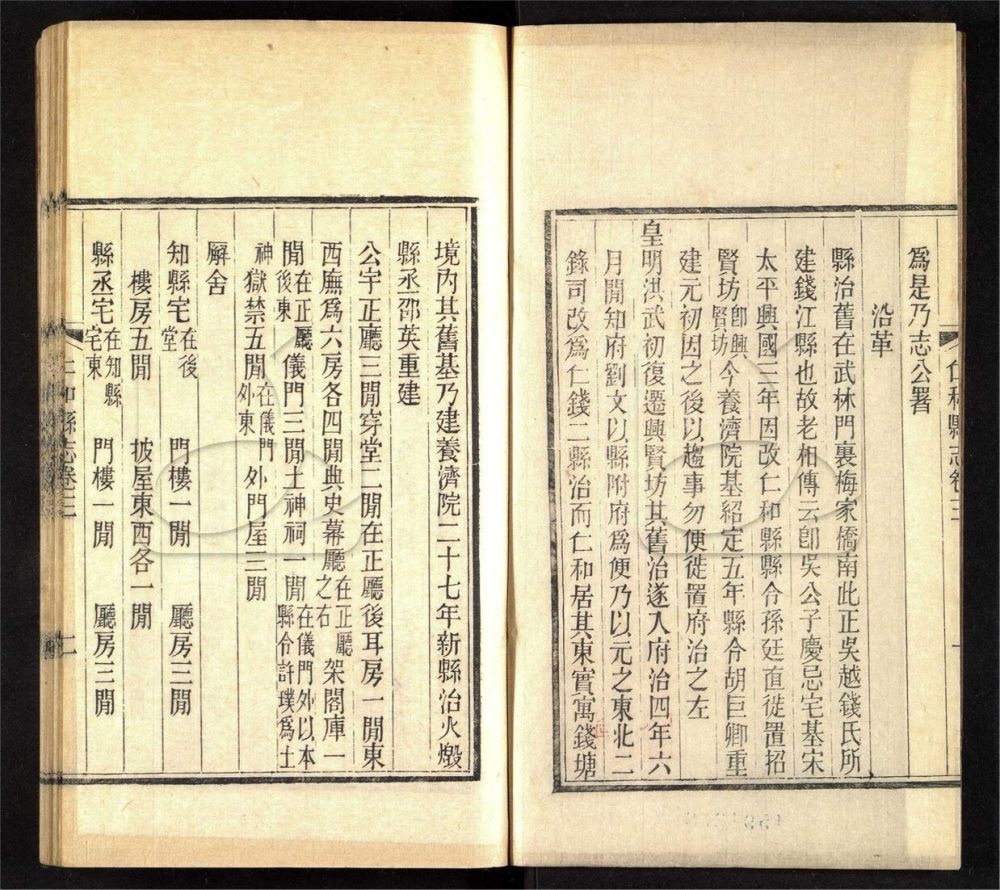 爲是乃志公署
沿革
縣治舊在武林門裏梅家橋南此正吳越錢氏所
建錢江縣也故老相傳云卽吳公子慶忌宅基宋
太平興國三年因改仁和縣縣令孫廷直徙置招
賢坊卽興賢坊今養濟院基紹定五年縣令胡巨卿重
建元初因之後以趨事勿便徙置府治之左
皇明洪武初復遷興賢坊其舊治遂入府治四年六
月閒知府劉文以縣附府爲便乃以元之東北二
錄司改爲仁錢二縣治而仁和居其東實寓錢塘
仁和縣志卷三
境內其舊基乃建養濟院二十七年新縣治火燬
縣丞邵英重建
公宇正廳三閒穿堂二閒在正廳後耳房一閒東
西廡爲六房各四閒典史幕廳在正廳之右架閣庫一
閒在正廳後東儀門三閒土神祠一閒在儀門外以本縣令許璞爲土
神獄禁五閒在儀門外東外門屋三閒
廨舍
知縣宅在後堂 門樓一閒 廳房三閒
樓房五閒 披屋東西各一閒
縣丞宅在知縣宅東 門樓一閒 廳房三閒
仁和縣志卷三 二